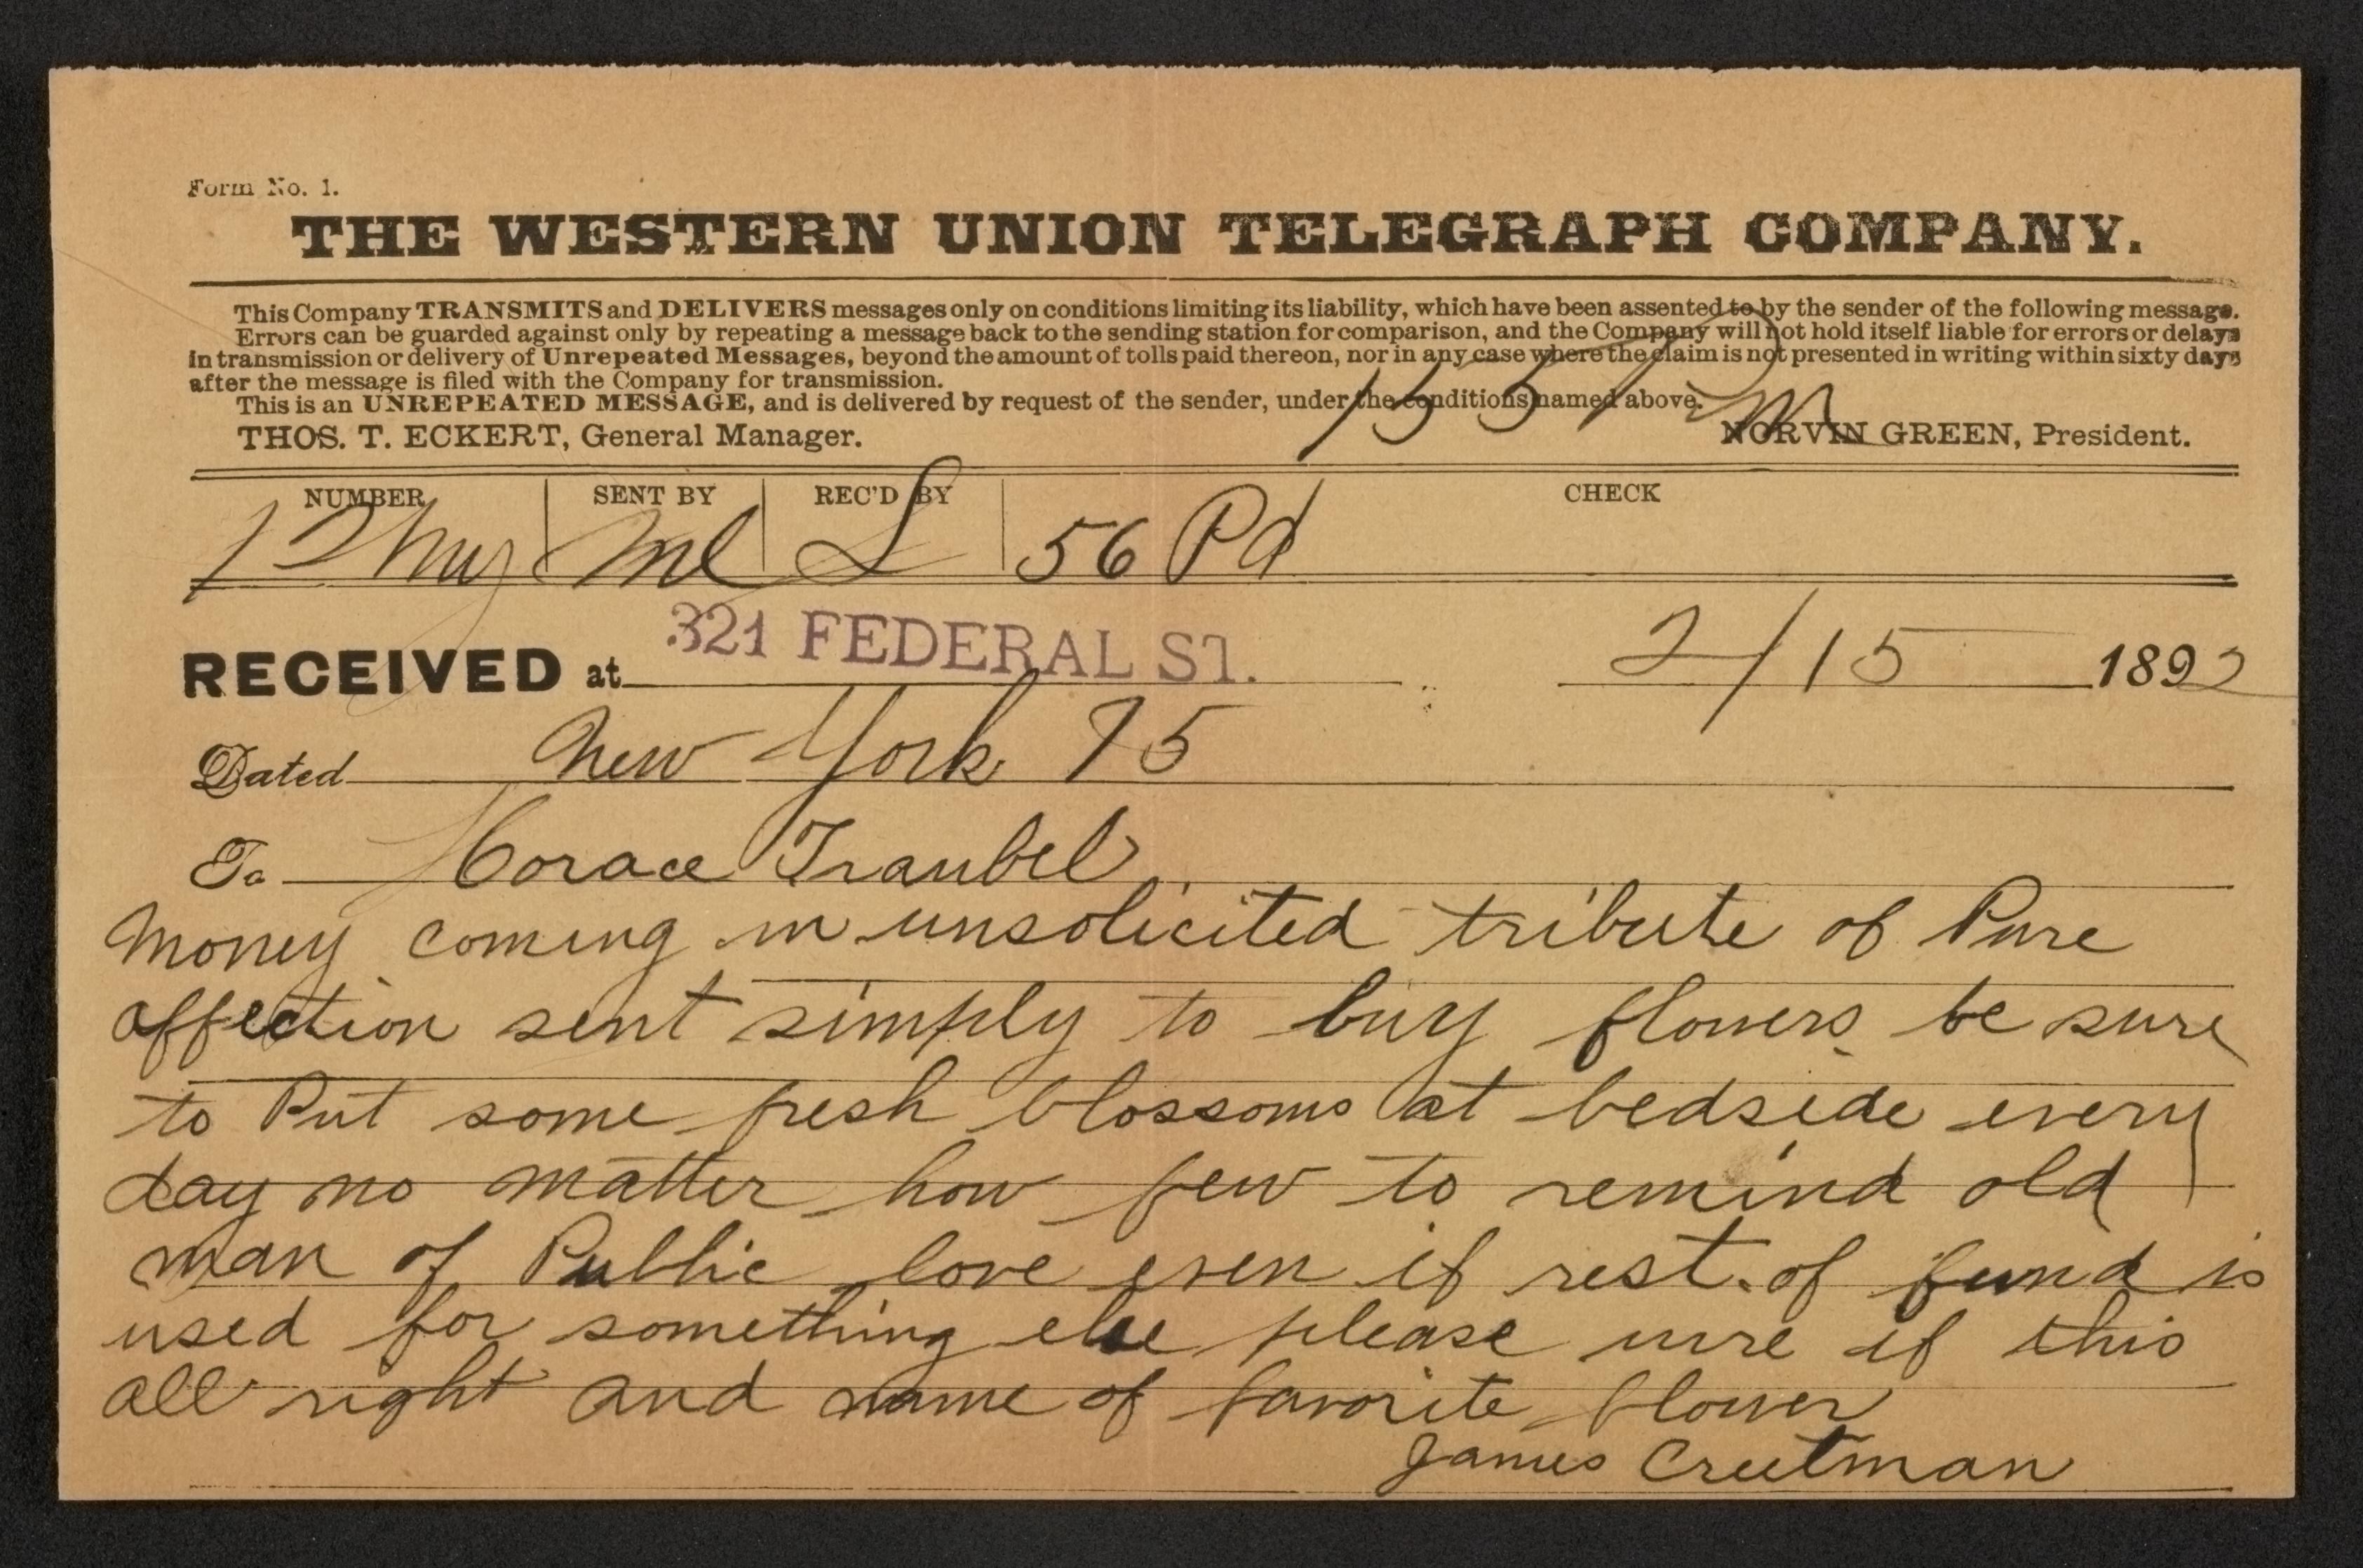 Form No. 1.
THE WESTERN UNION TELEGRAPH COMPANY.
This Company TRANSMITS and DELIVERS messages only on conditions limiting its liability, which have been assented to by the sender of the following message.
Errors can be guarded against only by repeating a message back to the sending station for comparison, and the Company will not hold itself liable for errors or delays
in transmission or delivery of Unrepeated Messages, beyond the amount of tolls paid thereon, nor in any case where the claim is not presented in writing within sixty days
after the message is filed with the Company for transmission.
This is an UNREPEATED MESSAGE, and is delivered by request of the sender, under the conditions named above.
THOS. T. ECKERT, General Manager. NORVIN GREEN, President.
NUMBER SENT BY REC'D BY CHECK
56 Pd
321 FEDERAL ST.
RECEIVED at 2/15 1892
Dated New York 15
To Horace Traubel
Money coming in unsolicited tribute of Pure
affection sent simply to buy flowers be sure
to Put some fresh blossoms at bedside every
day no matter how few to remind old
man of Public love even if rest of fund is
used for something else please wire if this
all right and name of favorite flower
James Creetman